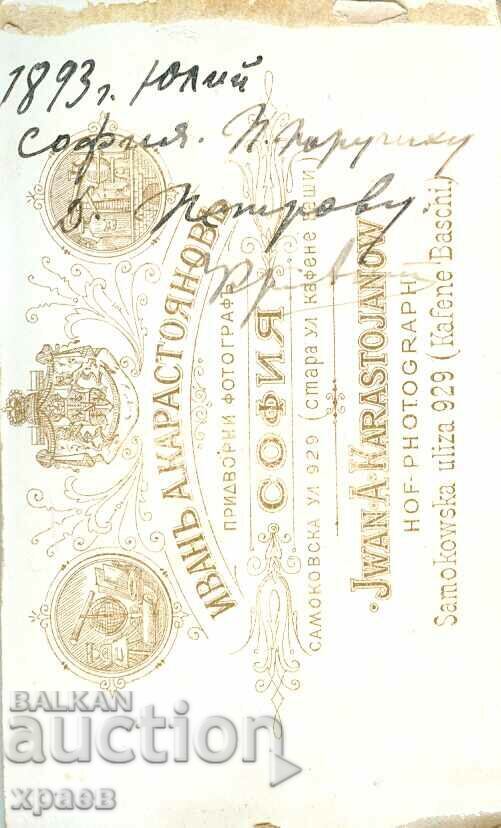 1893 г. Юлий
София. П. Поручику
Петрову
ИВАНЪ А. КАРАСТОЯНОВЪ
ПРИДВОРНИ ФОТОГРАФЪ
СОФИЯ
САМОКОВСКА УЛ 929 (стара ул кафене баши)
JWAN·A·KARASTOJANOW
HOF-PHOTOGRAPH
Samokowska uliza 929 (Kafene Baschi)
BALKAN
auction
храев